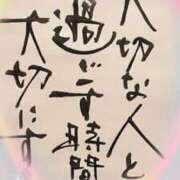 大切な人と
過ごす時間
大切にす